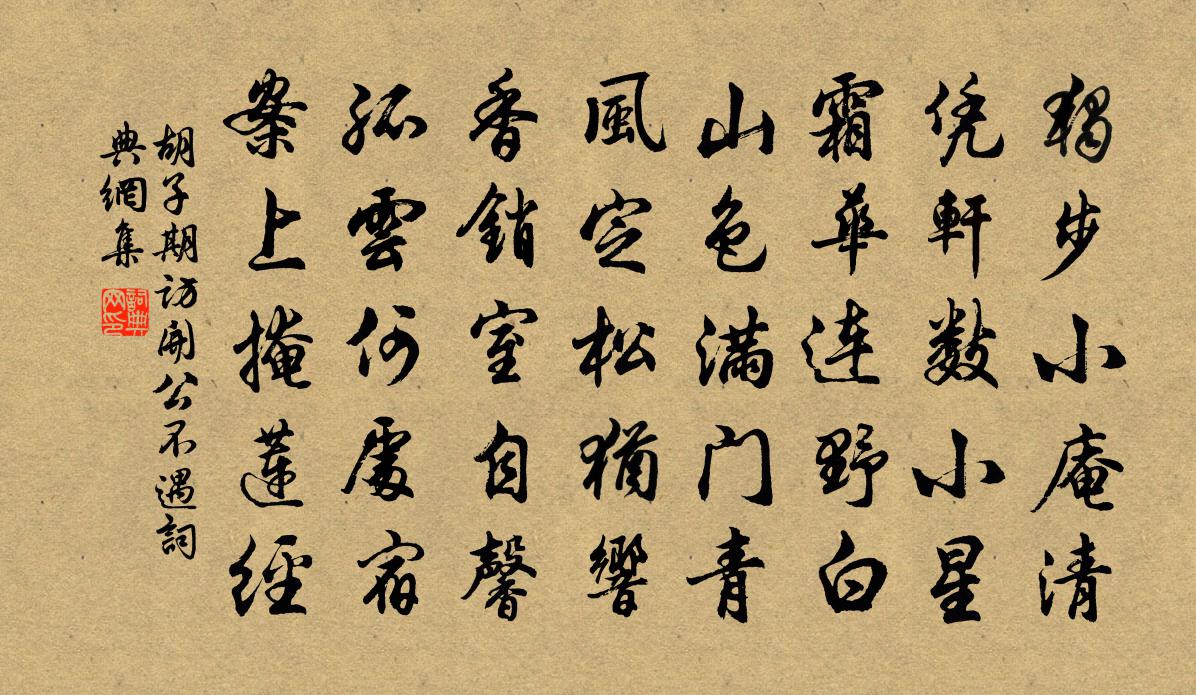 獨步小庵清
凭軒數小星
霜華連野白
山色滿门青
風定松猶響
香銷室自馨
孤雲何處宿
案上掩蓮經
胡子期訪開公不遇詞
典網集
詞典
网印